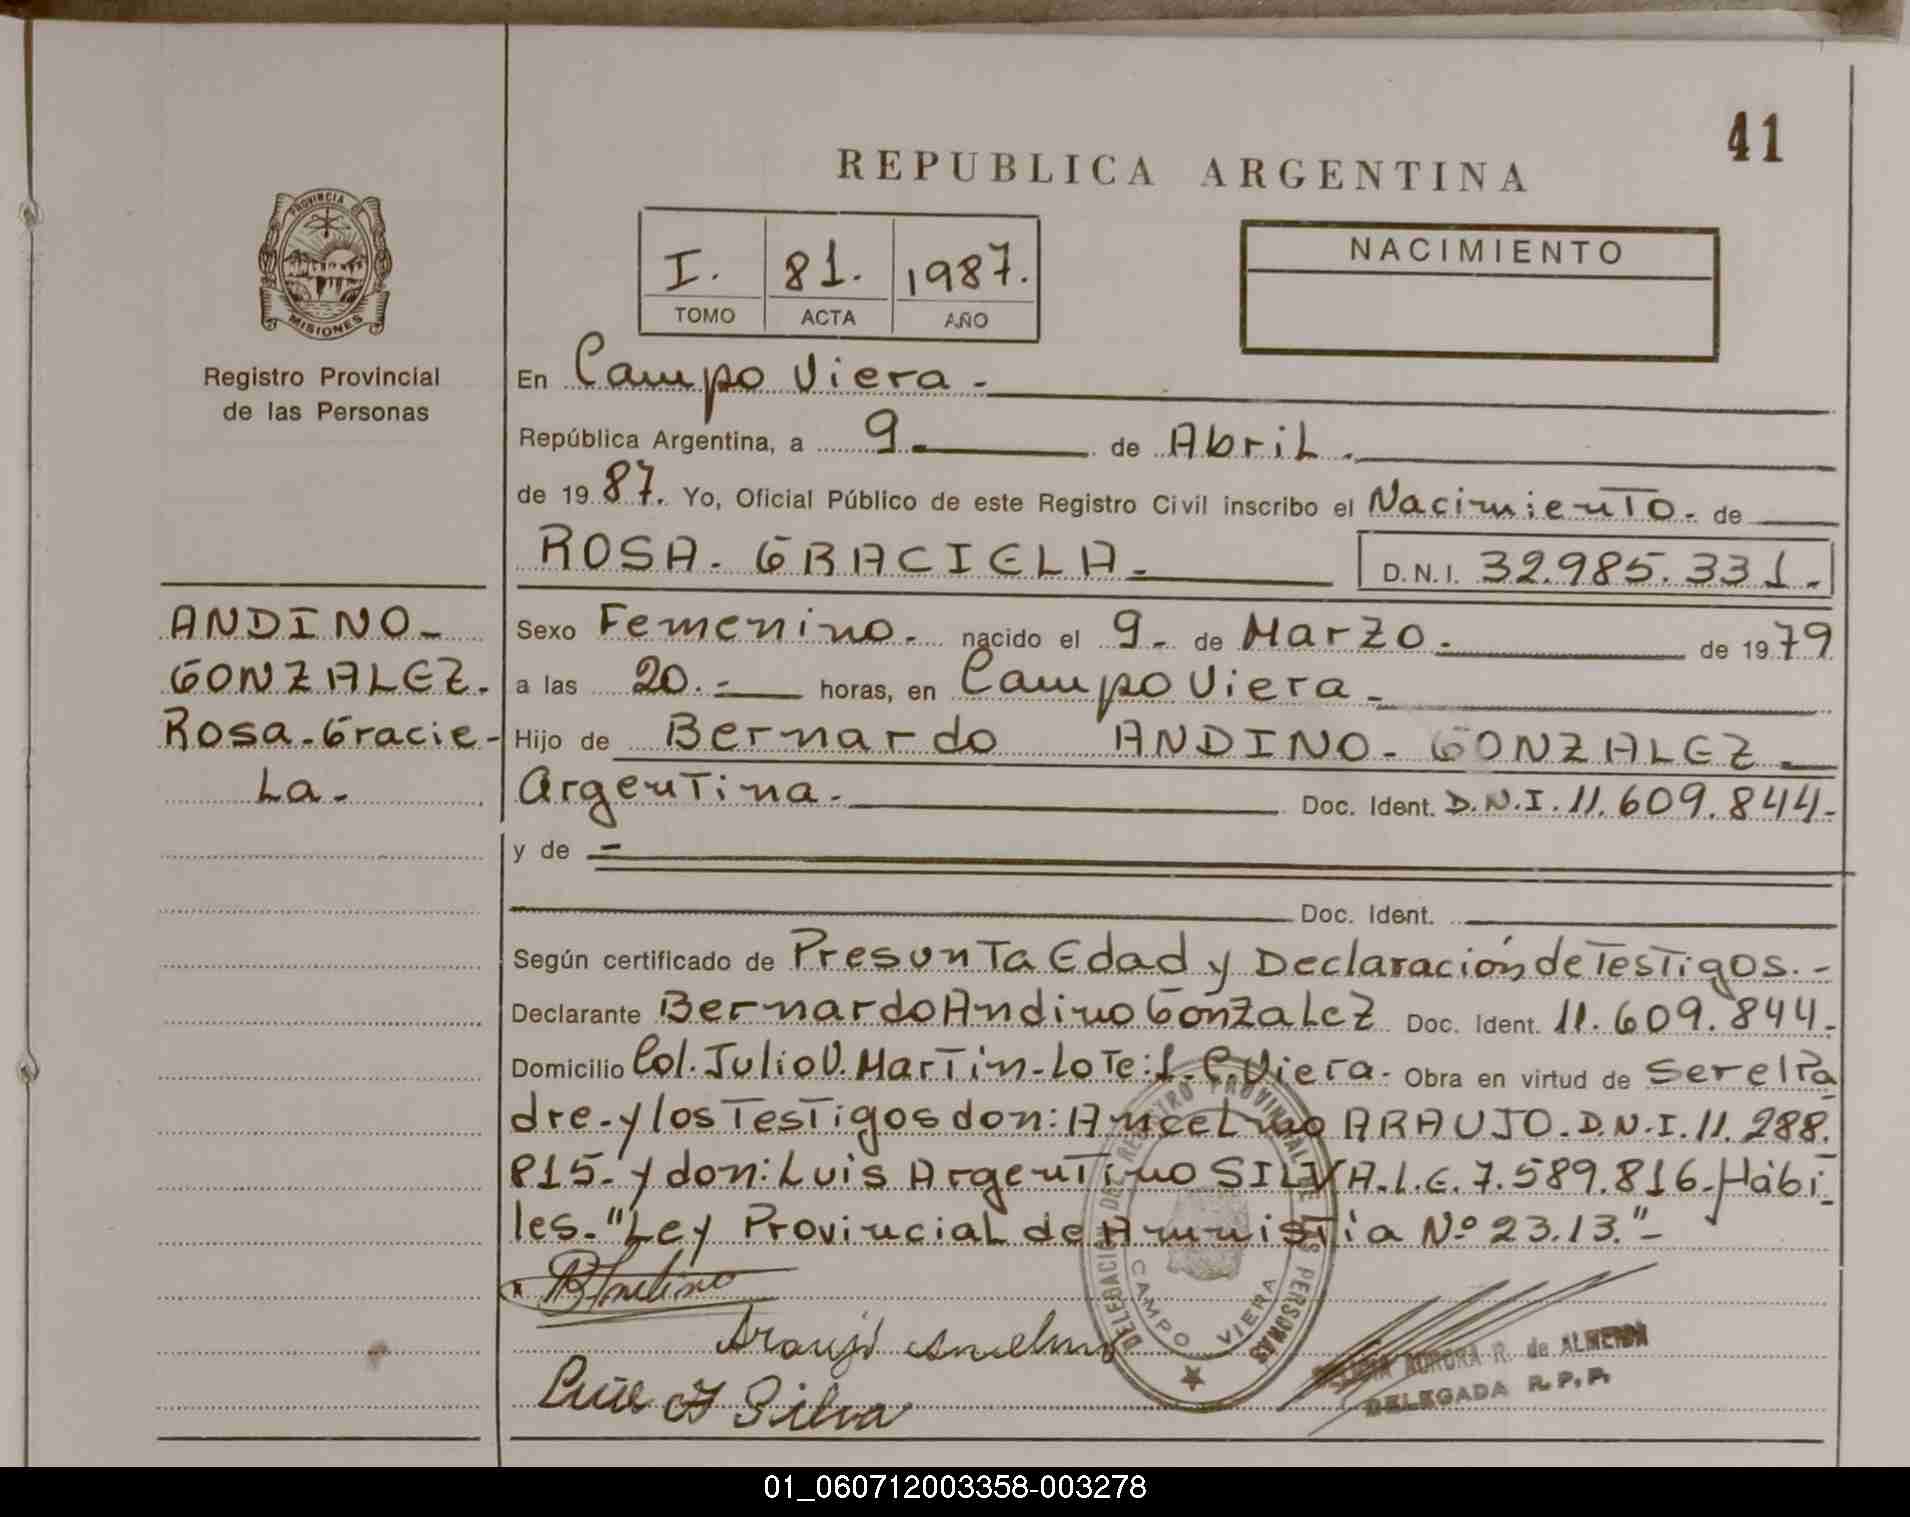 41
REPUBLICA ARGENTINA
PROVINCIA DE
MISIONES
Registro Provincial
de las Personas
I. 81. 1987.
TOMO ACTA AÑO
NACIMIENTO
En Campo Viera.-
República Argentina, a 9. de Abril.
de 1987. Yo, Oficial Público de este Registro Civil inscribo el Nacimiento.- de
ROSA. GRACIELA.- D.N.I. 32.985.331.-
ANDINO-
GONZALEZ.
Rosa.Gracie-
La.-
Sexo Femenino.- nacido el 9.- de Marzo.- de 1979
a las 20.- horas, en Campo Viera.-
Hijo de Bernardo ANDINO-GONZALEZ
Argentina.- Doc. Ident. D.N.I. 11.609.844.-
y de -
Doc. Ident.
Según certificado de Presunta Edad y Declaración de Testigos.-
Declarante Bernardo Andino Gonzalez Doc. Ident. 11.609.844.-
Domicilio Col. Julio U. Martin-Lote:1. C. Viera.- Obra en virtud de ser el Pa
dre-y los Testigos don: Ancelmo ARAUJO.D.N.I.11.288.
815.-y don: Luis Argentino SILVA.L.E.7.589.816.-Hábi-
les.-"Ley Provincial de Amnistía Nº 23.13."-
DELEGACION DEL REGISTRO PROVINCIAL DE LAS PERSONAS
CAMPO VIERA
Araujo Anselmo
Luis A Silva
AURORA R. de ALMEIDA
DELEGADA R.P.P.
01_060712003358-003278